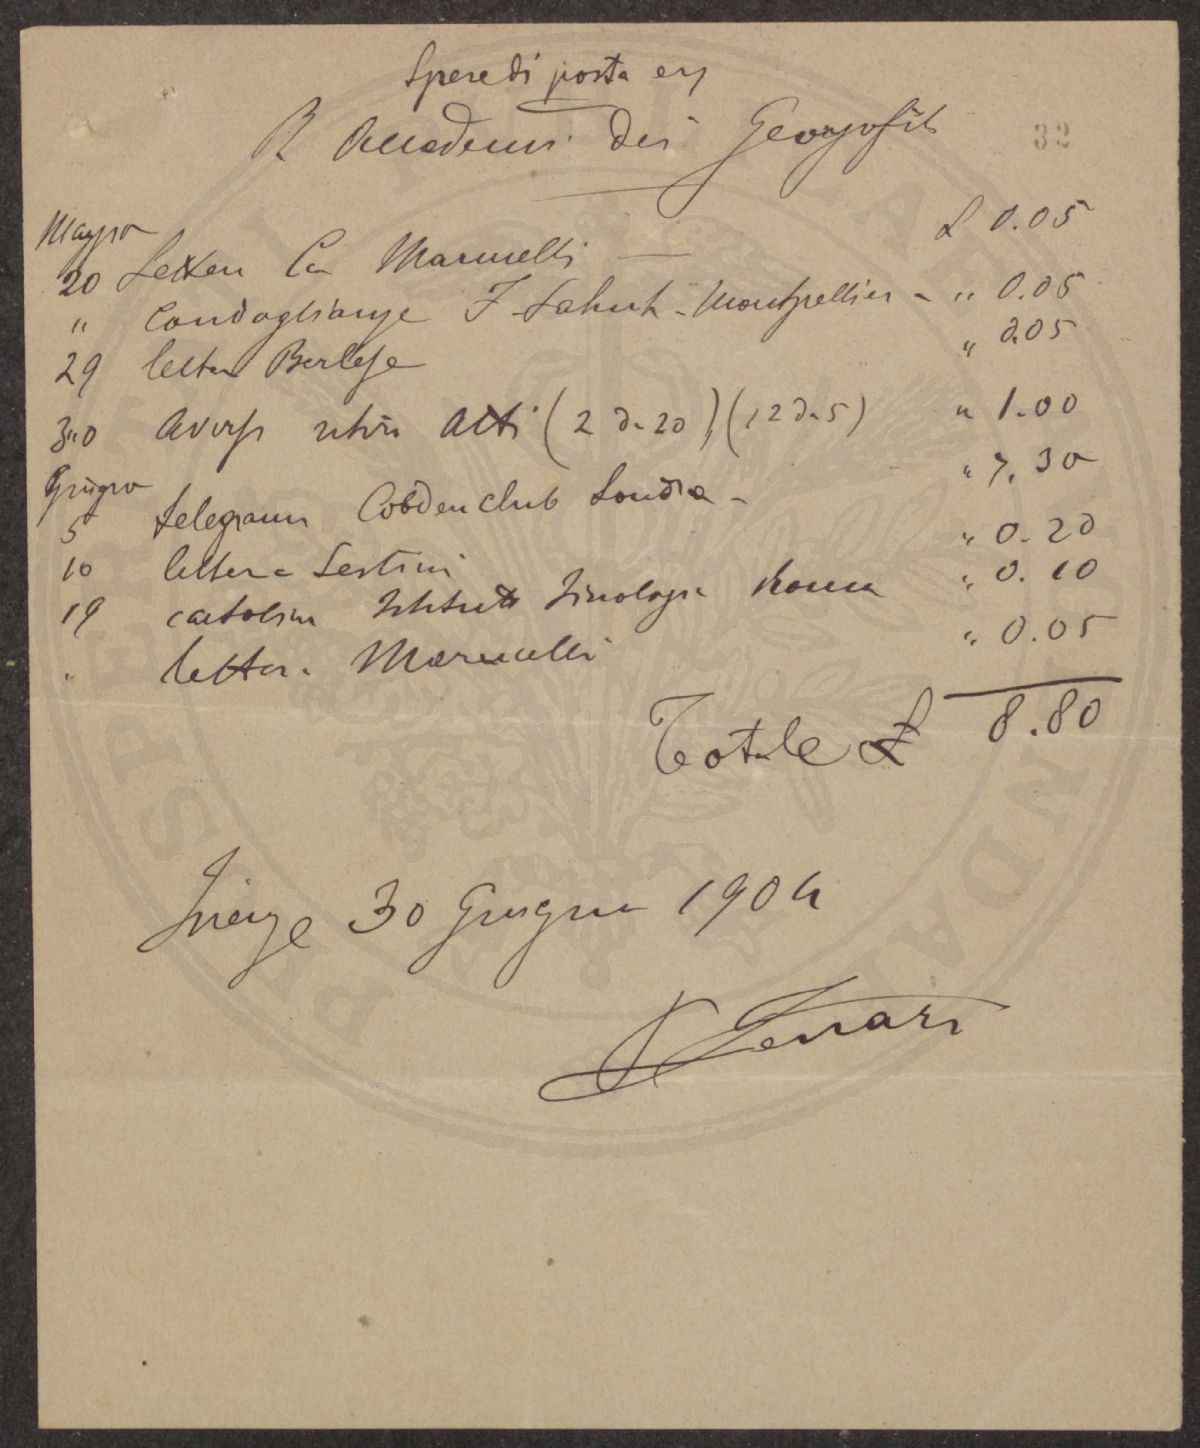 Spese di posta
R Accademia dei Georgofili
32
Maggio
20 Lettera Marinelli — £ 0.05
" Condoglianze Montpellier - " 0.05
29 lettera Berlese " 0.05
30 avvisi ritiro Atti (2 da 20) (12 da 5) " 1.00
Giugno
5 telegramma Cobden club Londra - " 7.30
10 lettera Sestini " 0.20
19 cartolina Istituto Roma " 0.10
" lettera Marinelli " 0.05
Totale £ 8.80
Firenze 30 Giugno 1904
Ferrari